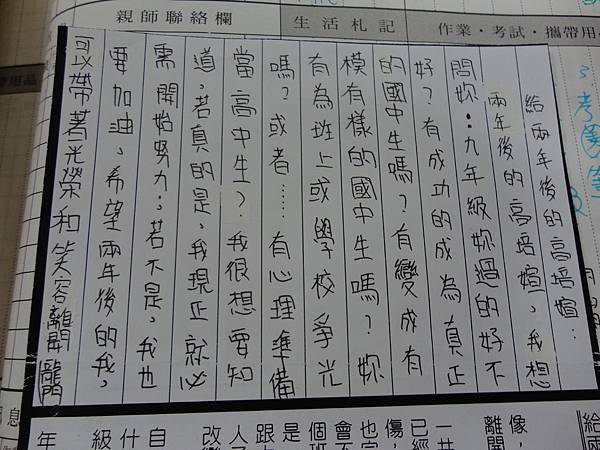 親師聯絡欄
生活札記
作業・考試・攜帶用
給兩年後的高培媗：
兩年後的高培媗，我想
問妳：九年級妳過的好不
好？有成功的成為真正
的國中生嗎？有變成有
模有樣的國中生嗎？妳
有為班上或學校爭光
嗎？或者……有心理準備
當高中生？我很想要知
道，若真的是，我現正就必
需開始努力；若不是，我也
要加油，希望兩年後的我，
可以帶著光榮和笑容離開龍
給兩
離開
像，
已經
一共
傷，
會不
個班
是
改變
自
什
級
年
息